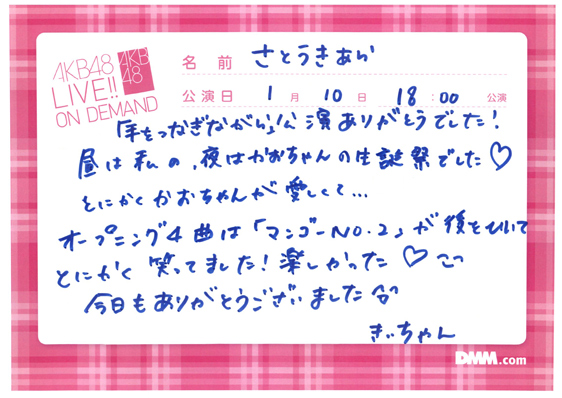 AKB48
LIVE!!
ON DEMAND
AKB
48
名前 さとうきあら
公演日 1月10日 18:00 公演
「手をつなぎながら」公演ありがとうでした!
昼は私の、夜はかおちゃんの生誕祭でした♡
とにかくかおちゃんが愛しくて...
オープニング4曲は「マンゴーNO.2」が後をひいて
とにかく笑ってました!楽しかった♡
今日もありがとうございました
きぃちゃん
DMM.com